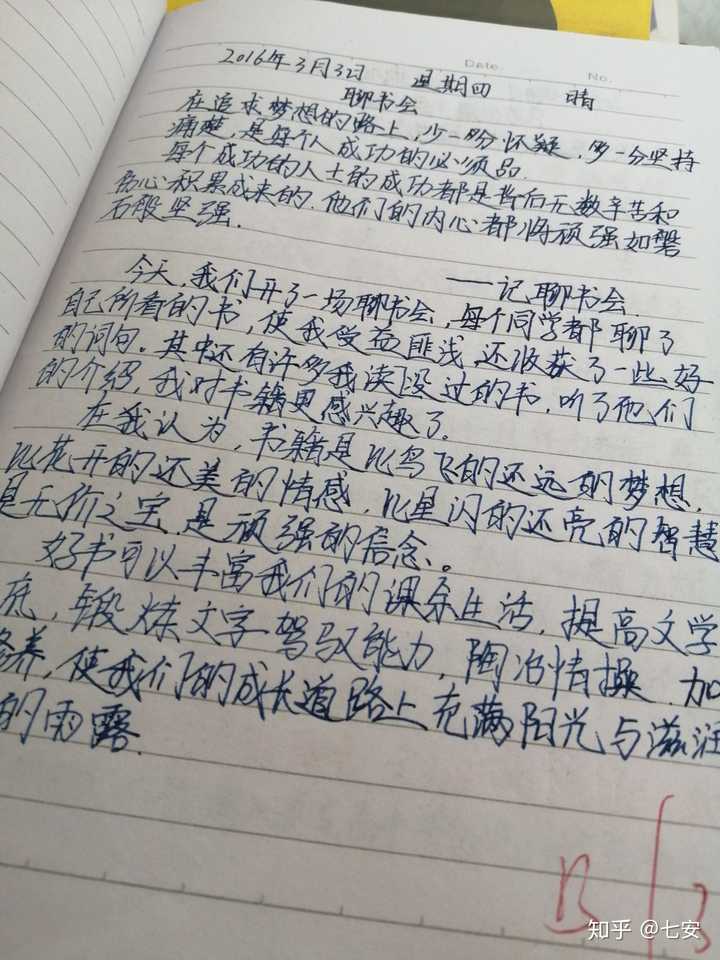 Date
No.
2016年3月3日 星期四 晴
聊书会
在追求梦想的路上,少一份怀疑,多一分坚持
痛楚,是每个人成功的必须品.
每个成功的人士的成功都是背后无数辛苦和
伤心积累成来的.他们的内心都将顽强如磐
石般坚强.
——记聊书会.
今天,我们开了一场聊书会,每个同学都聊了
自己所看的书,使我受益匪浅,还收获了一些好
的词句。其中还有许多我读没过的书,听了他们
的介绍,我对书籍更感兴趣了。
在我认为,书籍是比鸟飞的还远的梦想,
比花开的还美的情感,比星闪的还亮的智慧
是无价之宝,是顽强的信念。
好书可以丰富我们的课余生活,提高文学
底,锻炼文字驾驭能力,陶冶情操,加
修养,使我们的成长道路上充满阳光与滋润
的雨露.
B
3
知乎 @七安